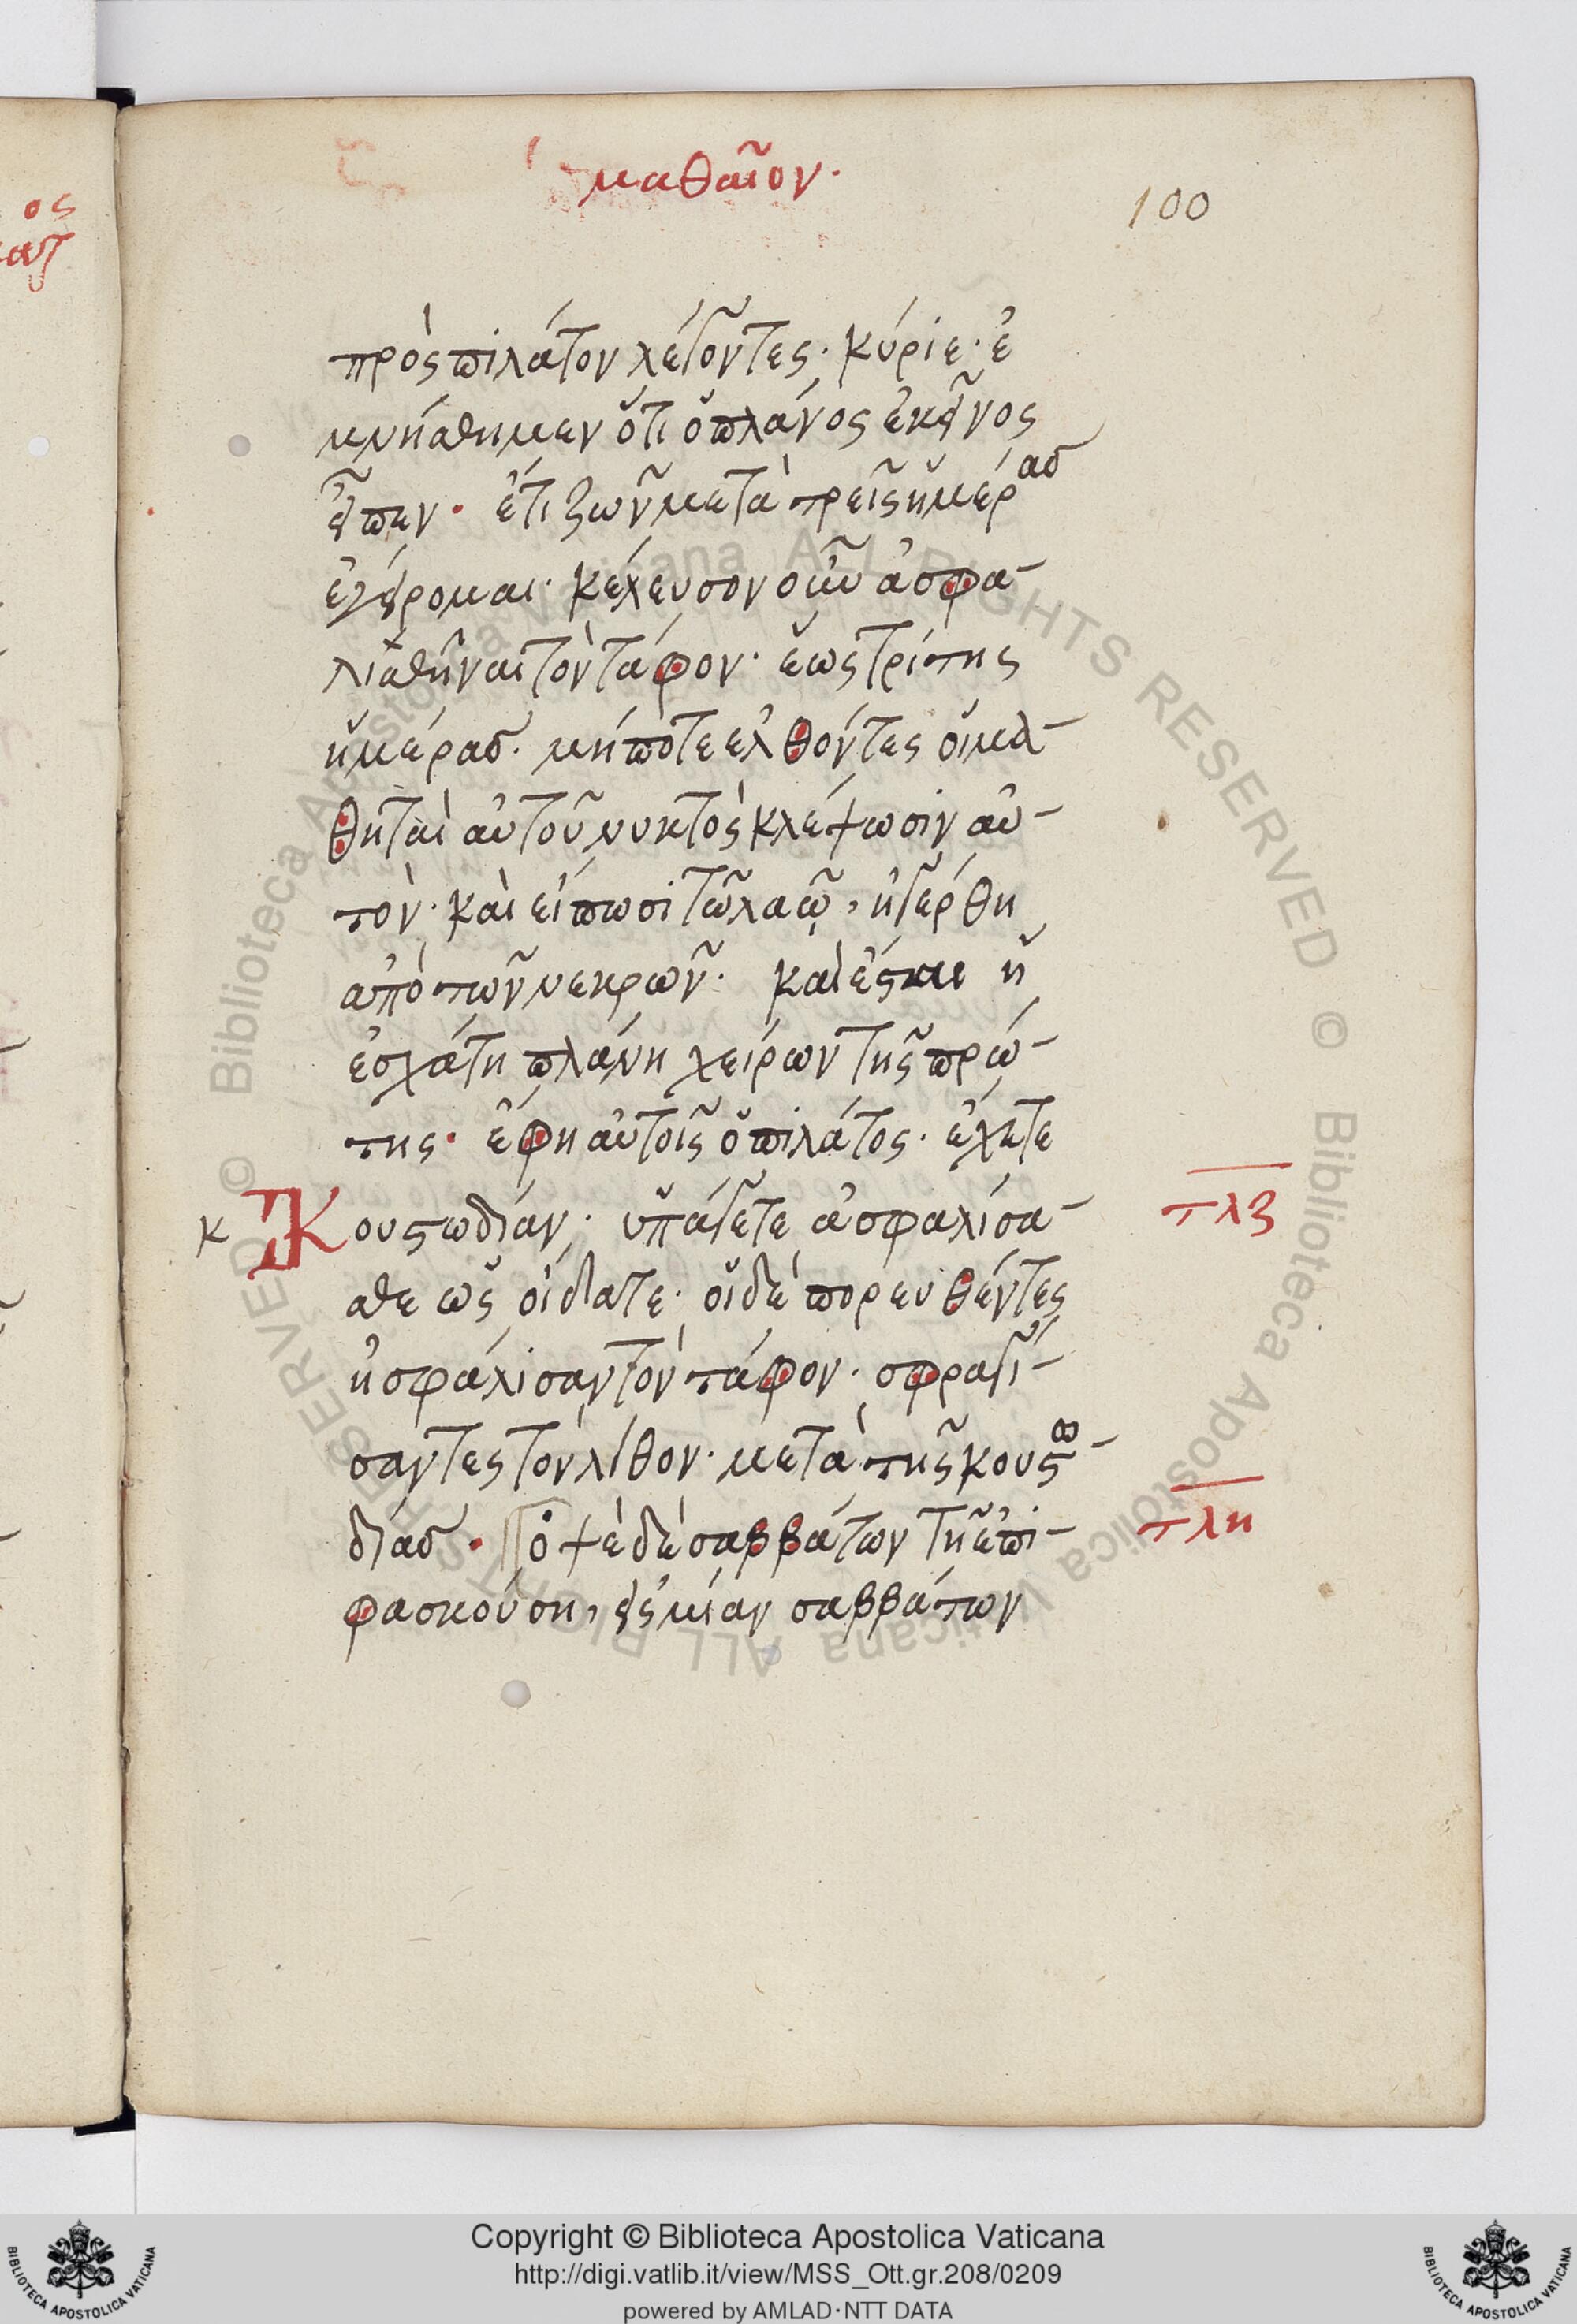 ος
ματ
μαθαῖον.
100
πρὸς πιλάτον λέγοντες· κύριε· ἐ
μνήσθημεν ὅτι ὁ πλάνος ἐκεῖνος
εἶπεν· ἔτι ζῶν μετὰ τρεῖς ἡμέρας
ἐγείρομαι· κέλευσον οὖν ἀσφα-
λισθῆναι τὸν τάφον· ἕως τρίτης
ἡμέρας· μήποτε ἐλθόντες οἱ μα-
θηταὶ αὐτοῦ νυκτὸς κλέψωσιν αὐ-
τὸν· καὶ είπωσι τῶ λαῷ, ἠγέρθη
ἀπὸ τῶν νεκρῶν· καὶ ἔσται ἡ
ἐσχάτη πλάνη χείρων τῆς πρώ-
της· ἔφη αὐτοῖς ὁ πιλάτος· ἔχετε
κ Κουστωδίαν· ὑπάγετε ἀσφαλίσα- τλζ
σθε ὡς οίδατε· οἱ δὲ πορευθέντες
ἠσφάλισαν τὸν τάφον· σφραγί-
σαντες τὸν λίθον· μετὰ τῆς κουστω-
δίας· ὀψὲ δὲ σαββάτων τῆ ἐπι- τλη
φασκούση, εἰς μίαν σαββάτων
© Biblioteca Apostolica Vaticana ALL RIGHTS RESERVED © Biblioteca Apostolica Vaticana ALL RIGHTS RESERVED
Copyright © Biblioteca Apostolica Vaticana
http://digi.vatlib.it/view/MSS_Ott.gr.208/0209
powered by AMLAD·NTT DATA
BIBLIOTECA APOSTOLICA VATICANA
BIBLIOTECA APOSTOLICA VATICANA